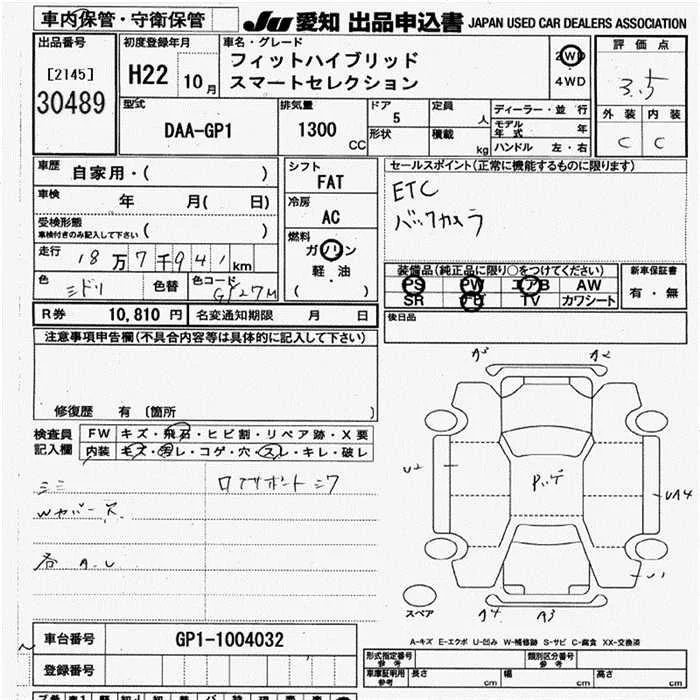 車内保管・守衛保管
JU 愛知 出品申込書 JAPAN USED CAR DEALERS ASSOCIATION
出品番号
[2145]
30489
初度登録年月
H22 10月
車名・グレード
フィットハイブリッド
スマートセレクション
2WD
4WD
評価点
3.5
外装 内装
C C
型式
DAA-GP1
排気量
1300 CC
ドア
5
形状
定員
人
積載
kg
ディーラー・並行
モデル年式 年
ハンドル 左・右
車歴
自家用・( )
車検
年 月( 日)
受検形態
車検付きのみ記入して下さい ( )
走行
18万7千941km
色
ミドリ
色替
色コード
シフト
FAT
冷房
AC
燃料
ガソリン
軽・油
( )
セールスポイント(正常に機能するものに限ります)
ETC
バックカメラ
装備品(純正品に限り○をつけてください)
PS PW エアB AW
SR ナビ TV カワシート
新車保証書
有・無
R券 10,810 円
名変通知期限 月 日
後日品
注意事項申告欄(不具合内容等は具体的に記入して下さい)
修復歴 有〔箇所 〕
検査員記入欄
FW キズ・飛石・ヒビ割・リペア跡・X要
内装 キズ・汚レ・コゲ・穴・スレ・キレ・破レ
Wカバース
各 A.U
A3 A2
U2
UA4
U1
A4 A3
スペア
A-キズ E-エクボ U-凹み W-補修跡 S-サビ C-腐食 XX-交換済
車台番号
GP1-1004032
登録番号
形式指定番号 参考
類別区分番号 参考
車庫証明用 参考
長さ cm
幅 cm
高さ cm